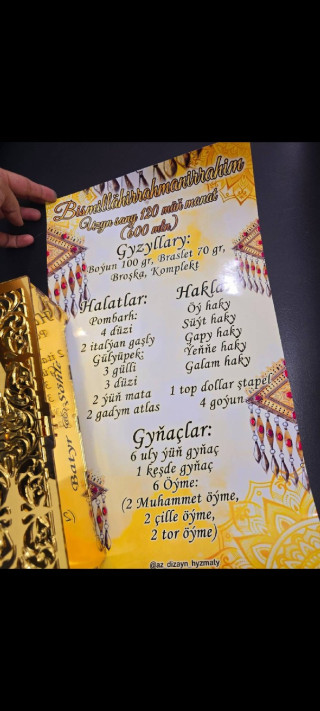 Bismillähirrahmanirrahim
Uzyn sany 120 müň manat
(600 mln)
Gyzyllary:
Boýun 100 gr, Braslet 70 gr,
Broşka, Komplekt
Halatlar:
Pombarh:
4 düzi
2 italýan gaşly
Gülyüpek:
3 gülli
3 düzi
2 ýüň mata
2 gadym atlas
Öý haky
Süýt haky
Gapy haky
Ýeňňe haky
Galam haky
1 top dollar ştapel
4 goýun
Gyňaçlar:
6 uly ýüň gyňaç
1 keşde gyňaç
6 Öýme:
(2 Muhammet öýme,
2 çille öýme,
2 tor öýme)
@az_dizayn_hyzmaty
Batyr